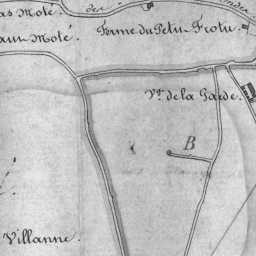 as Moté.
Ferme du Petit Trotu.
aut Moté.
Vt. de la Garde.
B
Villanne.